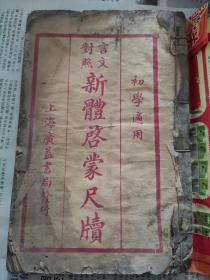 初學適用
言文
對照
新體啓蒙尺牘
上海廣益書局發行